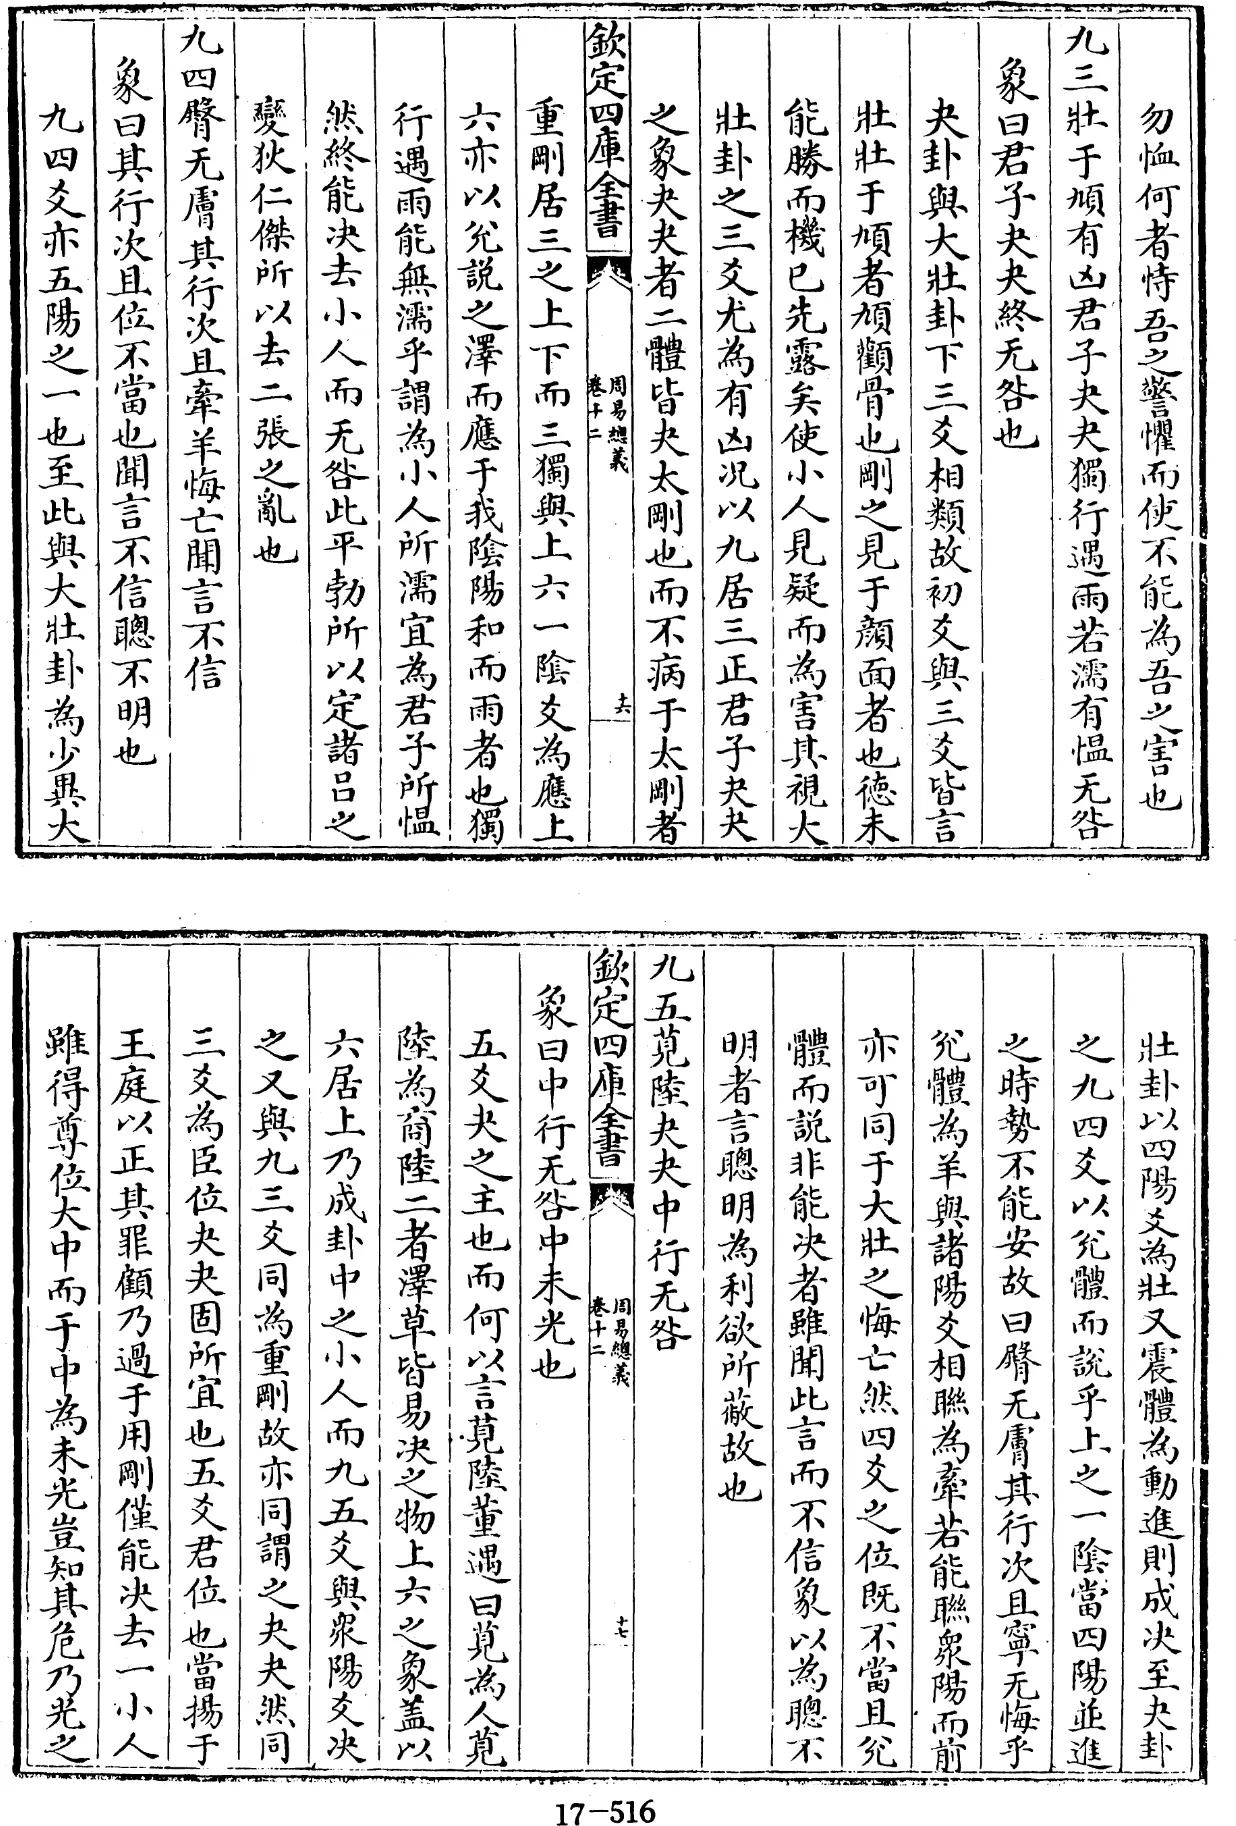 勿恤何者恃吾之警懼而使不能為吾之害也
九三壯于頄有凶君子夬夬獨行遇雨若濡有愠无咎
象曰君子夬夬終无咎也
夬卦與大壯卦下三爻相類故初爻與三爻皆言
壯壯于頄者頄顴骨也剛之見于顔面者也德未
能勝而機已先露矣使小人見疑而為害其視大
壯卦之三爻尤為有凶况以九居三正君子夬夬
之象夬夬者二體皆夬太剛也而不病于太剛者
欽定四庫全書
周易總義
卷十二
十六
重剛居三之上下而三獨與上六一陰爻為應上
六亦以兊説之澤而應于我陰陽和而雨者也獨
行遇雨能無濡乎謂為小人所濡宜為君子所愠
然終能决去小人而无咎此平勃所以定諸吕之
變狄仁傑所以去二張之亂也
九四臀无膚其行次且牽羊悔亡聞言不信
象曰其行次且位不當也聞言不信聰不明也
九四爻亦五陽之一也至此與大壯卦為少異大
壯卦以四陽爻為壯又震體為動進則成决至夬卦
之九四爻以兊體而説乎上之一陰當四陽並進
之時勢不能安故曰臀无膚其行次且寧无悔乎
兊體為羊與諸陽爻相聯為牽若能聯衆陽而前
亦可同于大壯之悔亡然四爻之位既不當且兊
體而説非能决者雖聞此言而不信象以為聰不
明者言聰明為利欲所蔽故也
九五莧陸夬夬中行无咎
欽定四庫全書
周易總義
卷十二
十七
象曰中行无咎中未光也
五爻夬之主也而何以言莧陸董遇曰莧為人莧
陸為商陸二者澤草皆易决之物上六之象盖以
六居上乃成卦中之小人而九五爻與衆陽爻决
之又與九三爻同為重剛故亦同謂之夬夬然同
三爻為臣位夬夬固所宜也五爻君位也當揚于
王庭以正其罪顧乃過于用剛僅能决去一小人
雖得尊位大中而于中為未光豈知其危乃光之
17-516